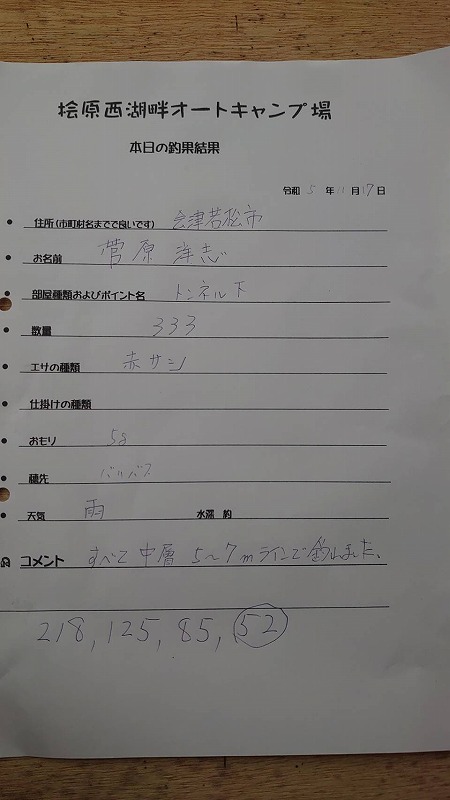 桧原西湖畔オートキャンプ場
本日の釣果結果
令和 5 年 11 月 17 日
住所(市町村名までで良いです) 会津若松市
お名前 菅原 洋志
部屋種類およびポイント名 トンネル下
数量 333
エサの種類 赤サシ
仕掛けの種類
おもり 5g
穂先 バリバス
天気 雨 水深 約
コメント すべて中層 5～7mラインで釣れました。
218, 125, 85, 52